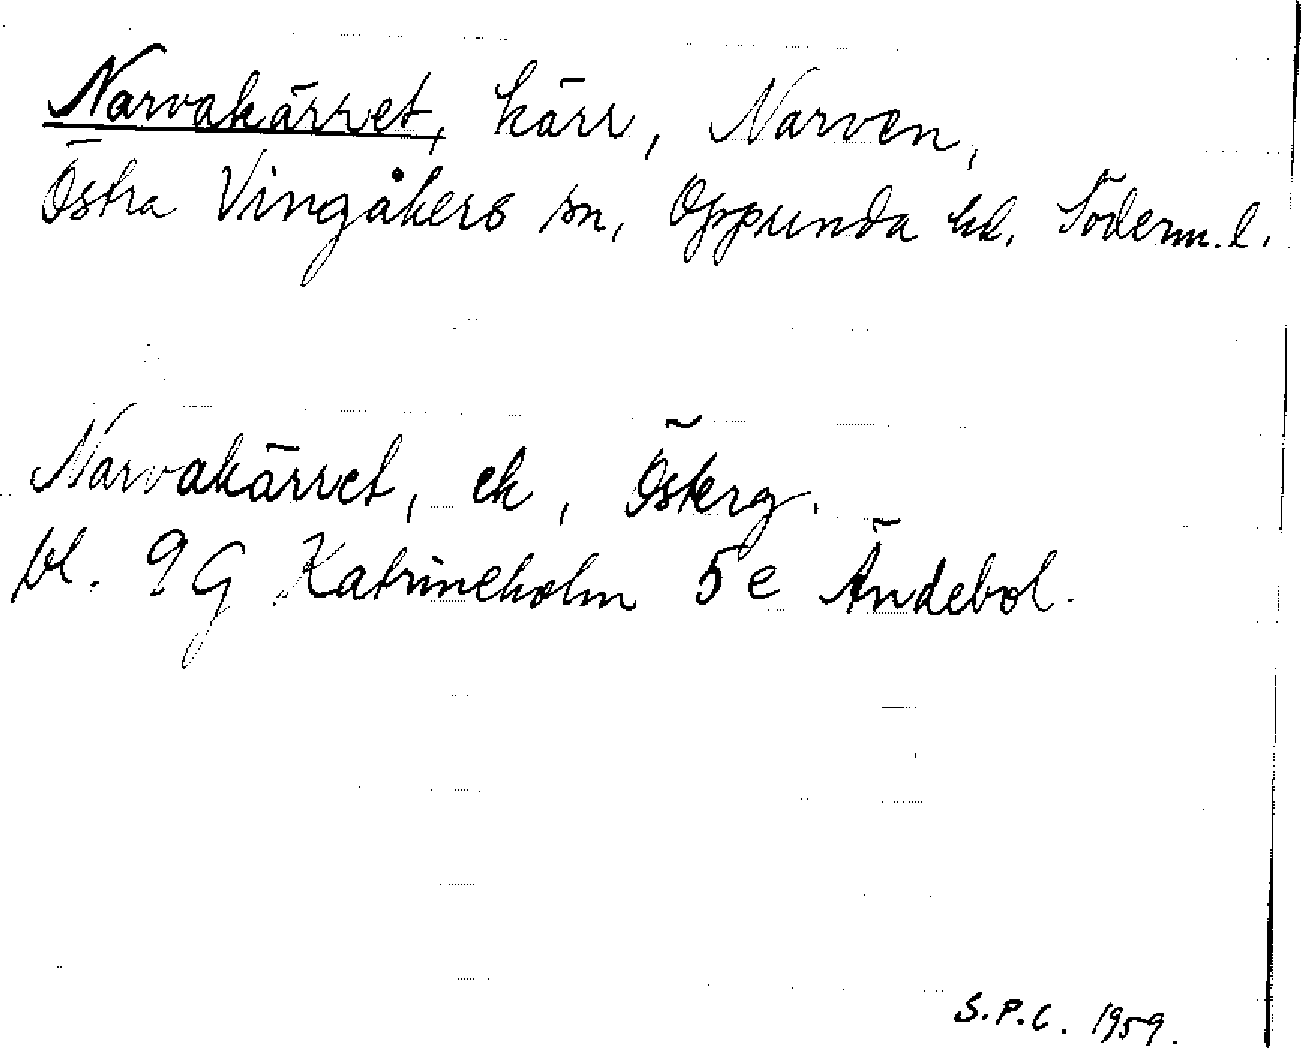 Narvakärret, kärr, Narven,
Östra Vingåkers sn, Oppunda hd. Söderm. l.
Narvakärret, ek, Österg.
bl. 9G Katrineholm 5e Ändebol.
S.P.C. 1959.